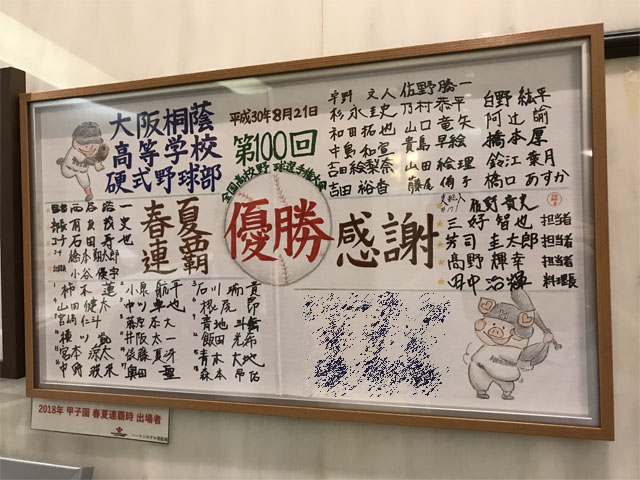 大阪桐蔭
高等学校
硬式野球部
平成30年8月21日
第100回
全国高校野球選手権大会
春夏
連覇
優勝
感謝
佐野勝一
杉永圭史
乃村恭平
白野紘平
和田拓也
山口竜矢
阿辻諭
中島和宣
貴島早絵
橋本原
吉田絵梨奈
山田絵理
鈴江葉月
吉田裕香
藤尾侑子
橋口あすか
三好智也 担当者
芳司圭太郎 担当者
高野輝幸 担当者
田中治輝 料理長
西谷浩一
有友茂史
石田寿也
橋本翔太郎
小谷優宇
柿木蓮
小泉航平
石川瑞貴
山田健太
中川卓也
根尾昂
宮﨑仁斗
藤原恭大
青地斗舞
横川凱
井阪太一
飯田光希
宮本涼太
俵藤夏冴
青木大地
中野波来
奥田一聖
森本昂佑
2018年 甲子園 春夏連覇時 出場者